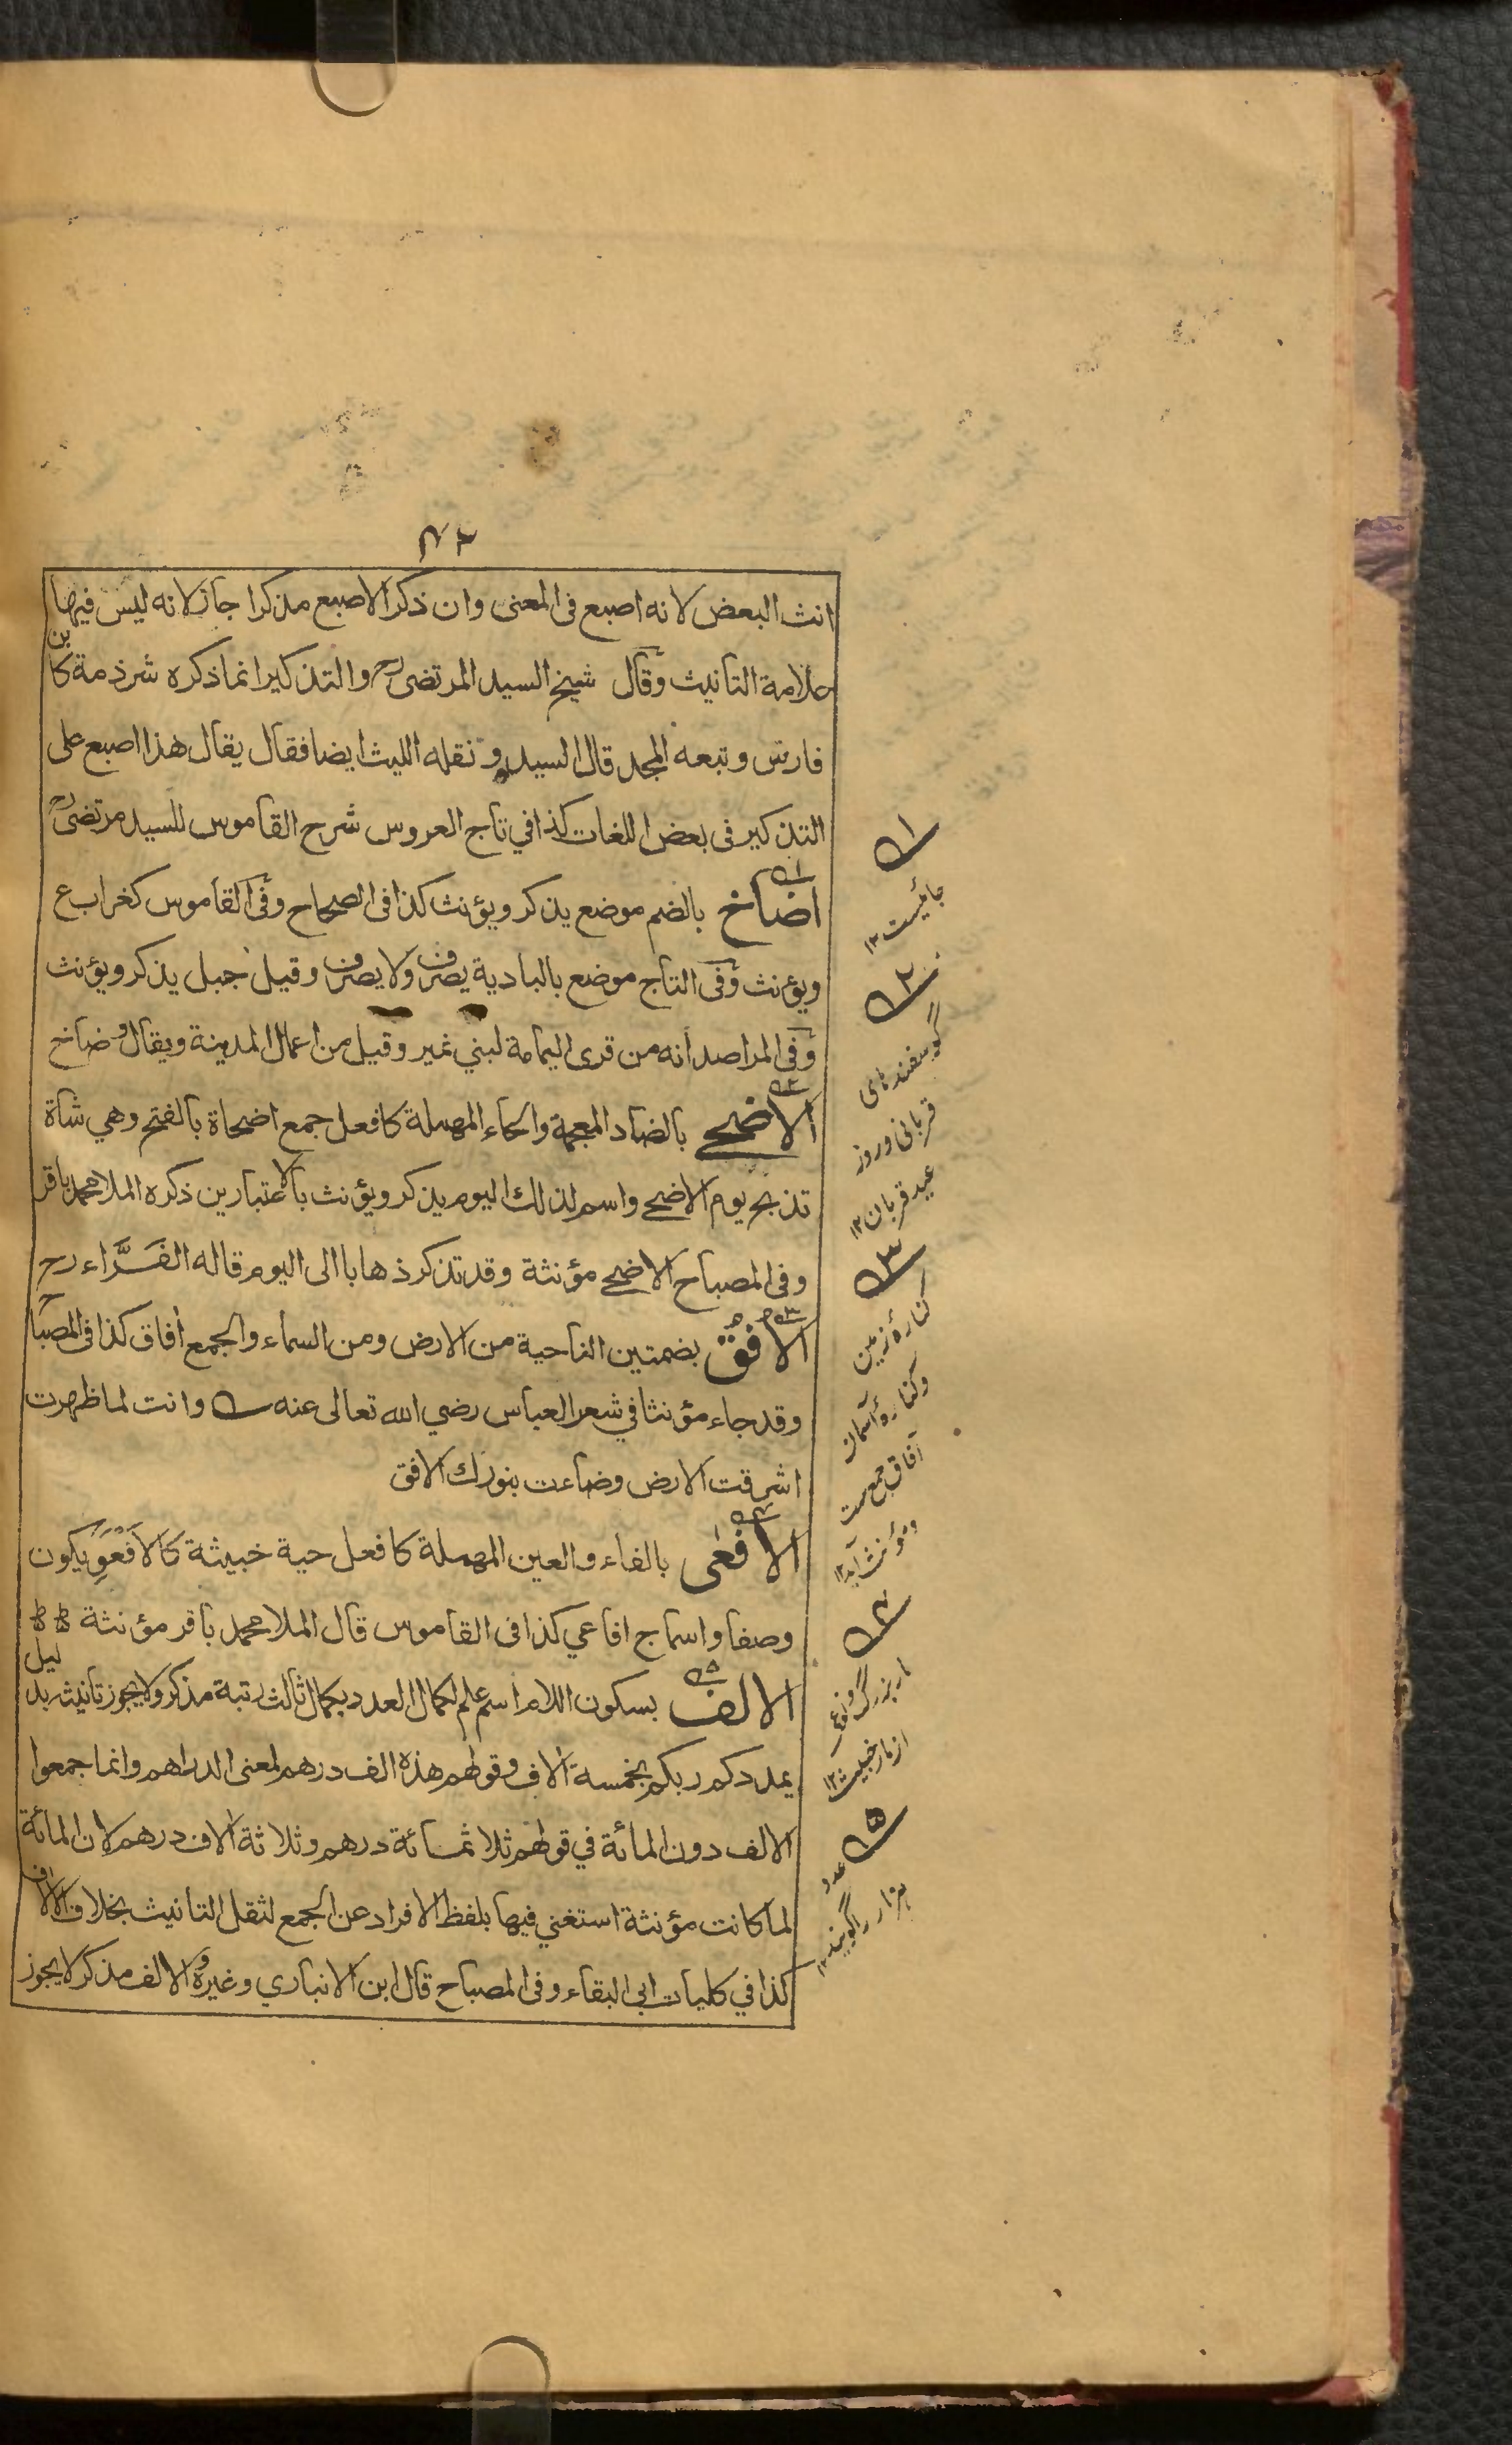 ٤٢
انث البعض لانه اصبع فى المعنى وان ذكر الاصبع مذكرا جاز لانه ليس فيها
علامة التانيث وقال شيخ السيد المرتضى رح والتذكير انما ذكره شرذمة كابن
فارس وتبعه المجد قال السيد ونقله الليث ايضا فقال يقال هذا اصبع على
التذكير فى بعض اللغات كذا في تاج العروس شرح القاموس للسيد مرتضى رح
اضاخ بالضم موضع يذكر ويؤنث كذا فى الصحاح وفى القاموس كغراب ع
ويؤنث وفى التاج موضع بالبادية يصرف ولا يصرف وقيل جبل يذكر ويؤنث
وفى المراصد انه من قرى اليمامة لبني نمير وقيل من اعمال المدينة ويقال وضاخ
الاضحى بالضاد المعجمة والحاء المهملة كافعل جمع اضحاة بالفتح وهي شاة
تذبح يوم الاضحى واسم لذلك اليوم يذكر ويؤنث بالاعتبارين ذكره الملا محمد باقر
وفى المصباح الاضحى مؤنثة وقد تذكر ذهابا الى اليوم قاله الفَرَّاء رح
الافُقُ بضمتين الناحية من الارض ومن السماء والجمع آفاق كذا فى المصباح
وقد جاء مؤنثا في شعر العباس رضي الله تعالى عنه وانت لما ظهرت
اشرقت الارض وضاءت بنورك الافق
الافعى بالفاء والعين المهملة كافعل حية خبيثة كالافعو يكون
وصفا واسما ج افاعي كذا فى القاموس قال الملا محمد باقر مؤنثة
الالف بسكون اللام اسم علم لكمال العدد بكمال ثالث رتبة مذكر ولا يجوز تانيثه بدليل
يمددكم ربكم بخمسة الاف وقولهم هذه الف درهم لمعنى الدراهم وانما جمعوا
الالف دون المائة في قولهم ثلاثمائة درهم وثلاثة الاف درهم لان المائة
لما كانت مؤنثة استغني فيها بلفظ الافراد عن الجمع لثقل التانيث بخلاف الالاف
كذا في كليات ابى البقاء وفى المصباح قال ابن الانباري وغيره والالف مذكر لا يجوز
١
جائيست ١٢
٢
گوسفندهاى
قربانى وروز
عيد قربان ١٢
٣
كنارهٔ زمين
وكنارهٔ آسمان
آفاق جمع ست
ومؤنث آيد ١٢
٤
مار بزرگ ونوع
از مار خبيث ١٢
٥
عدد
هزار را گويند ١٢